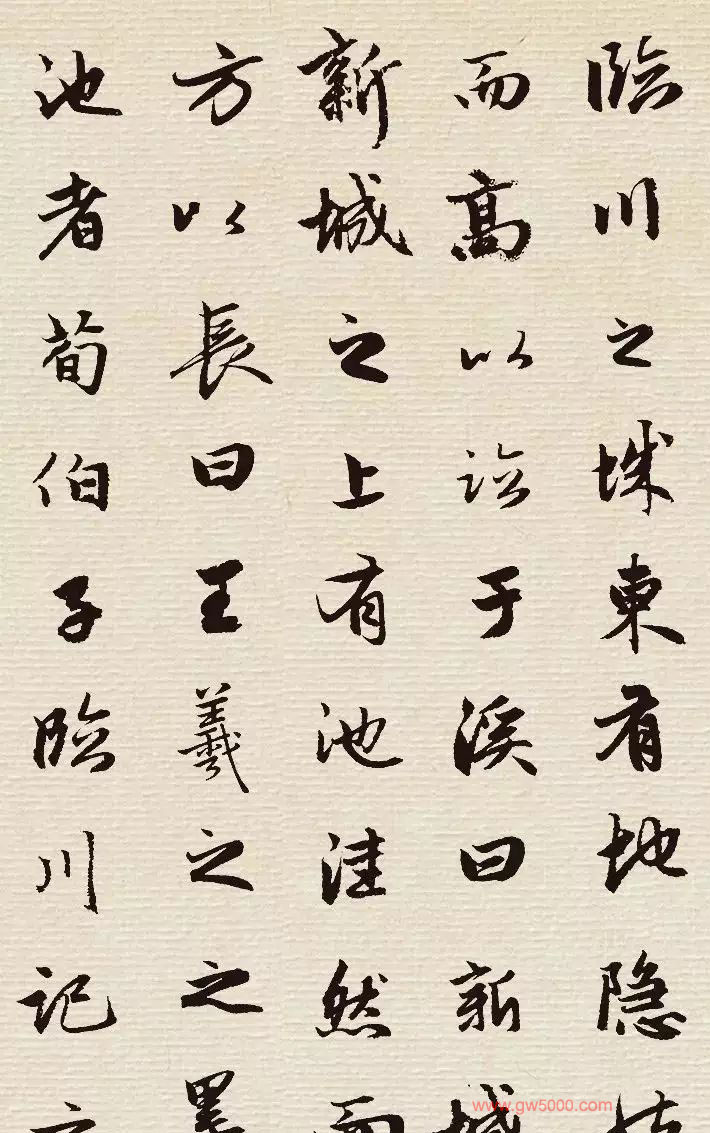 臨川之城東有地隐
而高以臨于溪曰新城
新城之上有池洼然而
方以長曰王羲之之墨
池者荀伯子臨川記
www.gw5000.com